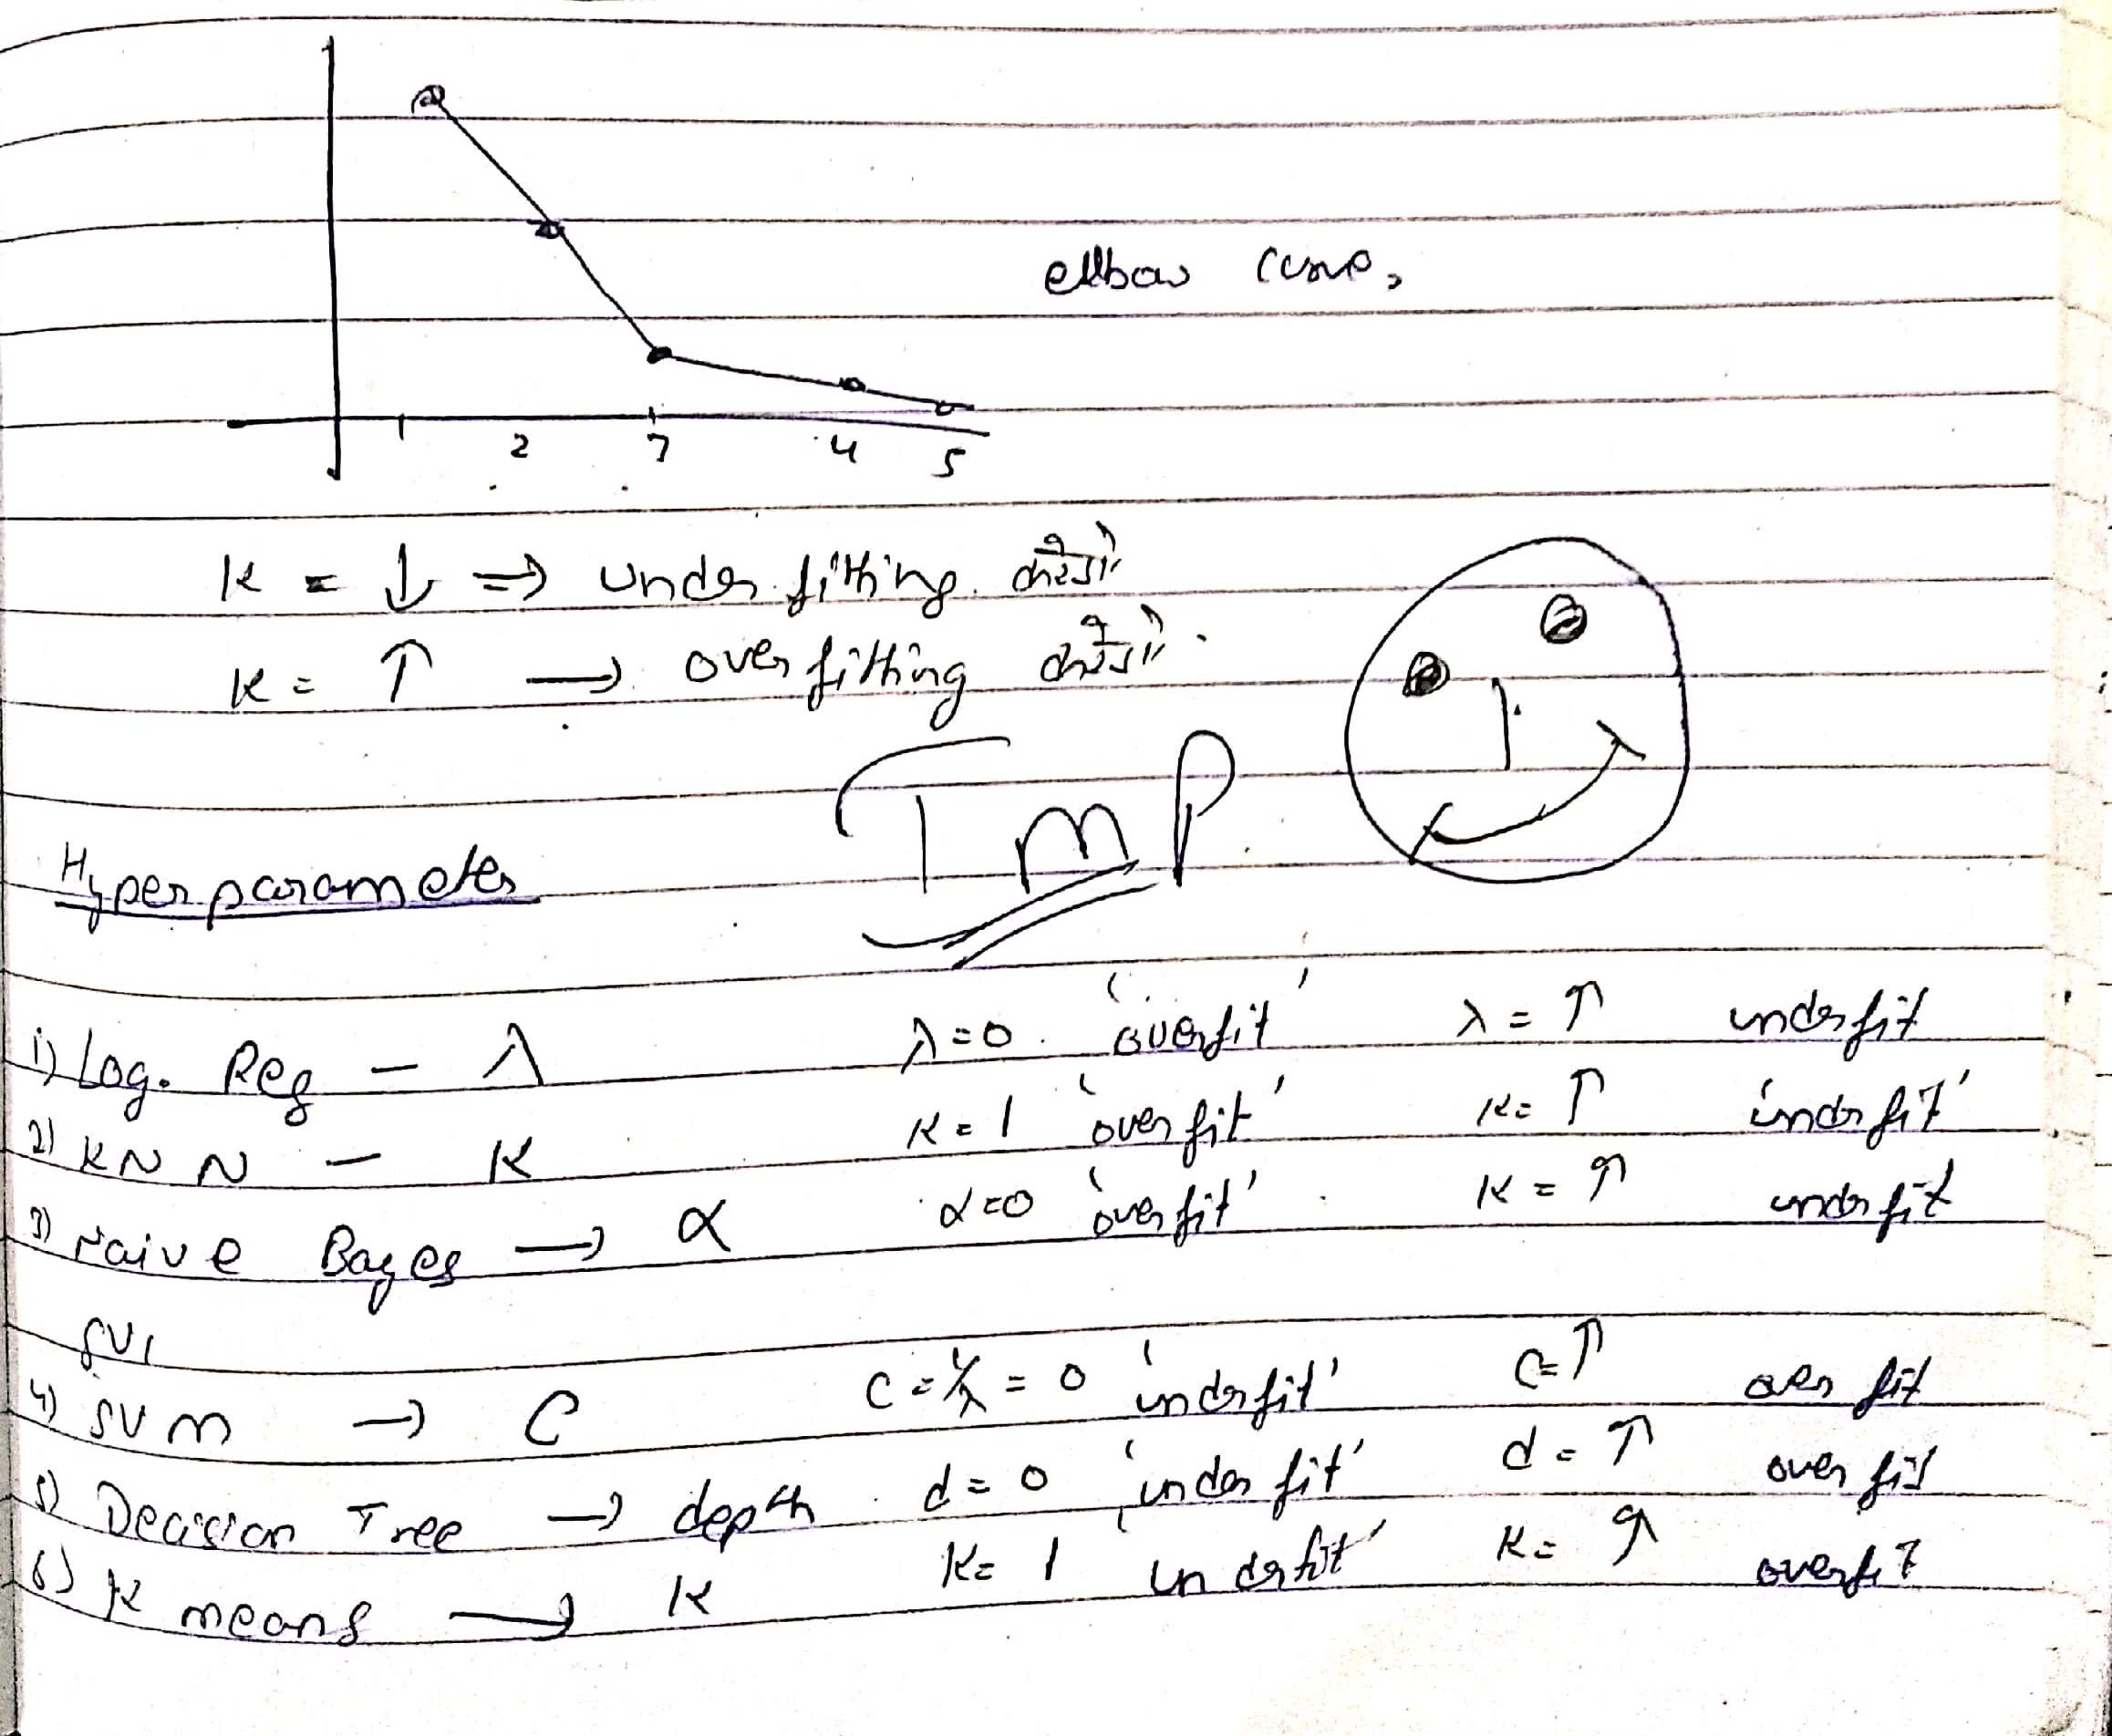 ellbow curve,
1 2 3 4 5
K = ↓ ⇒ underfitting
K = ↑ → overfitting
Imp
Hyperparameter
1) Log. Reg - λ λ=0. 'overfit' λ = ↑ underfit
2) KNN - K K=1 'overfit' K= ↑ 'underfit'
3) Naive Bayes → α α=0 'overfit' K = ↑ underfit
SV
4) SVM → C C = 1/λ = 0 'underfit' C=↑ over fit
5) Decision Tree → depth d=0 'under fit' d = ↑ over fit
6) K means → K K= 1 'underfit' K= ↑ overfit